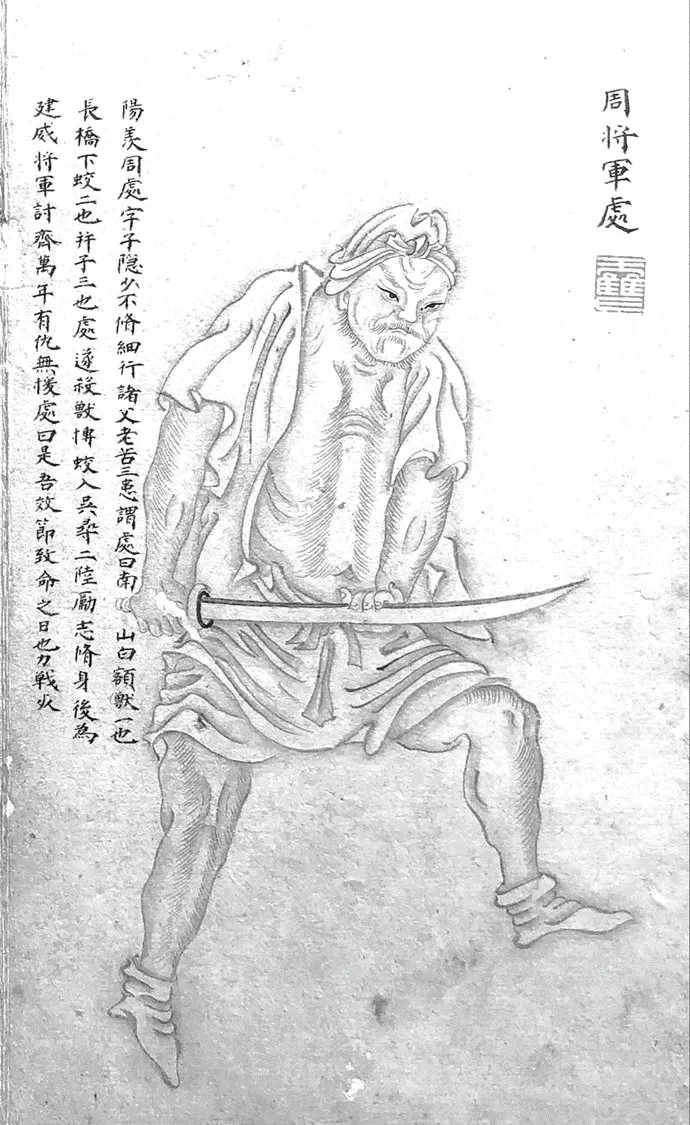 周將軍處
陽羨周處字子隱少不脩細行諸父老苦三患謂處曰南山白額獸一也
長橋下蛟二也并子三也處遂殺獸搏蛟入吳尋二陸勵志脩身後為
建威將軍討齊萬年有仇無援處曰是吾效節致命之日也力戰火